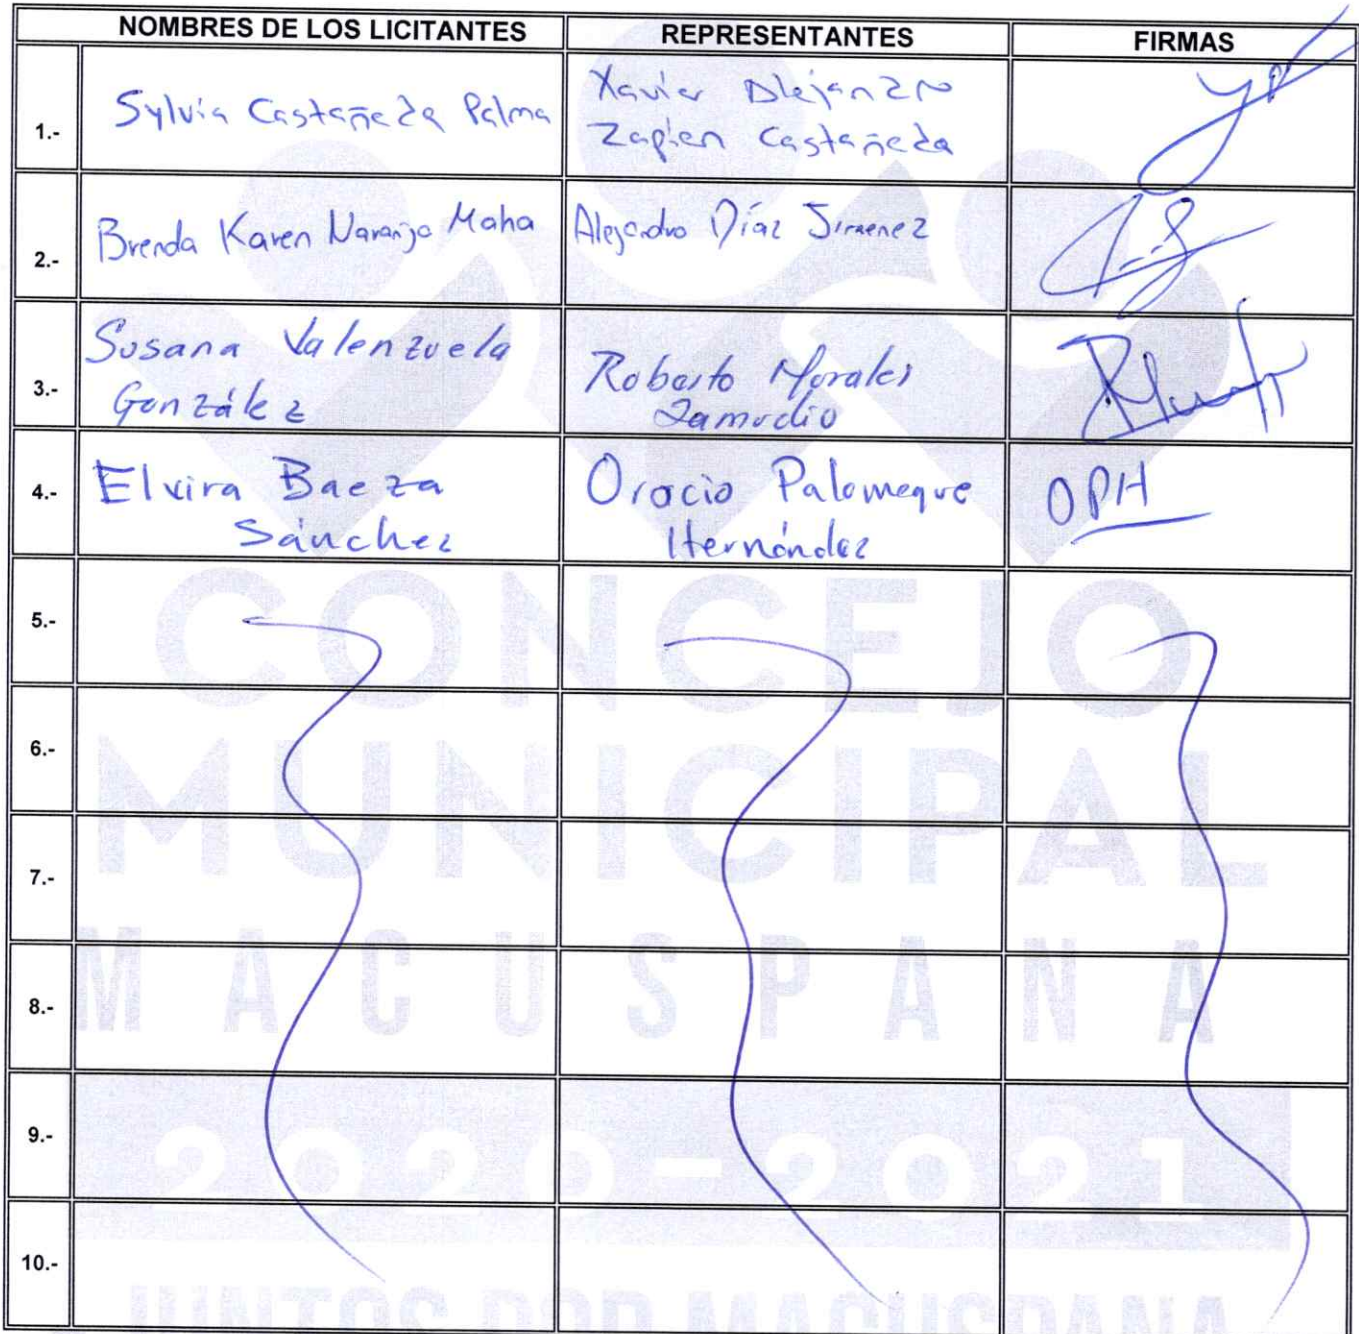 NOMBRES DE LOS LICITANTES REPRESENTANTES FIRMAS
1.- Sylvia Castañeda Palma Xavier Alejandro
Zapien Castañeda
2.- Brenda Karen Naranjo Maha Alejandro Díaz Jimenez
3.- Susana Valenzuela
González
Roberto Morales
Zamudio
4.- Elvira Baeza
Sánchez
Oracio Palomeque
Hernández
OPH
5.-
6.-
7.-
8.-
9.-
10.-
CONCEJO
MUNICIPAL
MACUSPANA
2020-2021
JUNTOS POR MACUSPANA